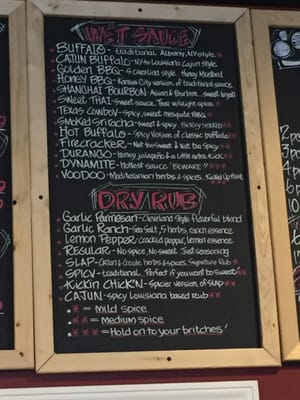 WET SAUCE
BUFFALO - traditional Albany, NY style *
CAJUN BUFFALO - NY to Louisiana Cajun Style
Golden BBQ - S. Carolina style Honey Mustard
HONEY BBQ - Kansas City version of traditional sauce
SHANGHAI BOURBON - Asian & Bourbon
SWEET THAI - sweet sauce, Thai w/slight spice *
TEXAS COWBOY - spicy, sweet mesquite BBQ
SMOKED Sriracha - sweet & spicy, Hickory smoked **
HOT BUFFALO - Spicy Version of classic buffalo **
FIRECRACKER - Not too Sweet & Not too Spicy **
DURANGO - Honey jalapeño & a little extra kick **
DYNAMITE - hottest sauce! BEWARE! ***
VOODOO - Mediterranean herbs & spices. Kicked Up
DRY RUB
Garlic Parmesan - Cleveland Style flavorful blend
Garlic Ranch - Sea Salt, 5 herbs, ranch essence
Lemon Pepper - Cracked pepper, lemon essence
REGULAR - No spice, No sweet. Just seasoning
SLAP - Cajun & Creole herbs & spices, Signature Rub *
SPICY - traditional. Perfect if you want to sweat **
Kickin Chick'n - Spicier version of SLAP **
CAJUN - spicy Louisiana based rub **
* = mild spice
** = medium spice
*** = Hold on to your britches!